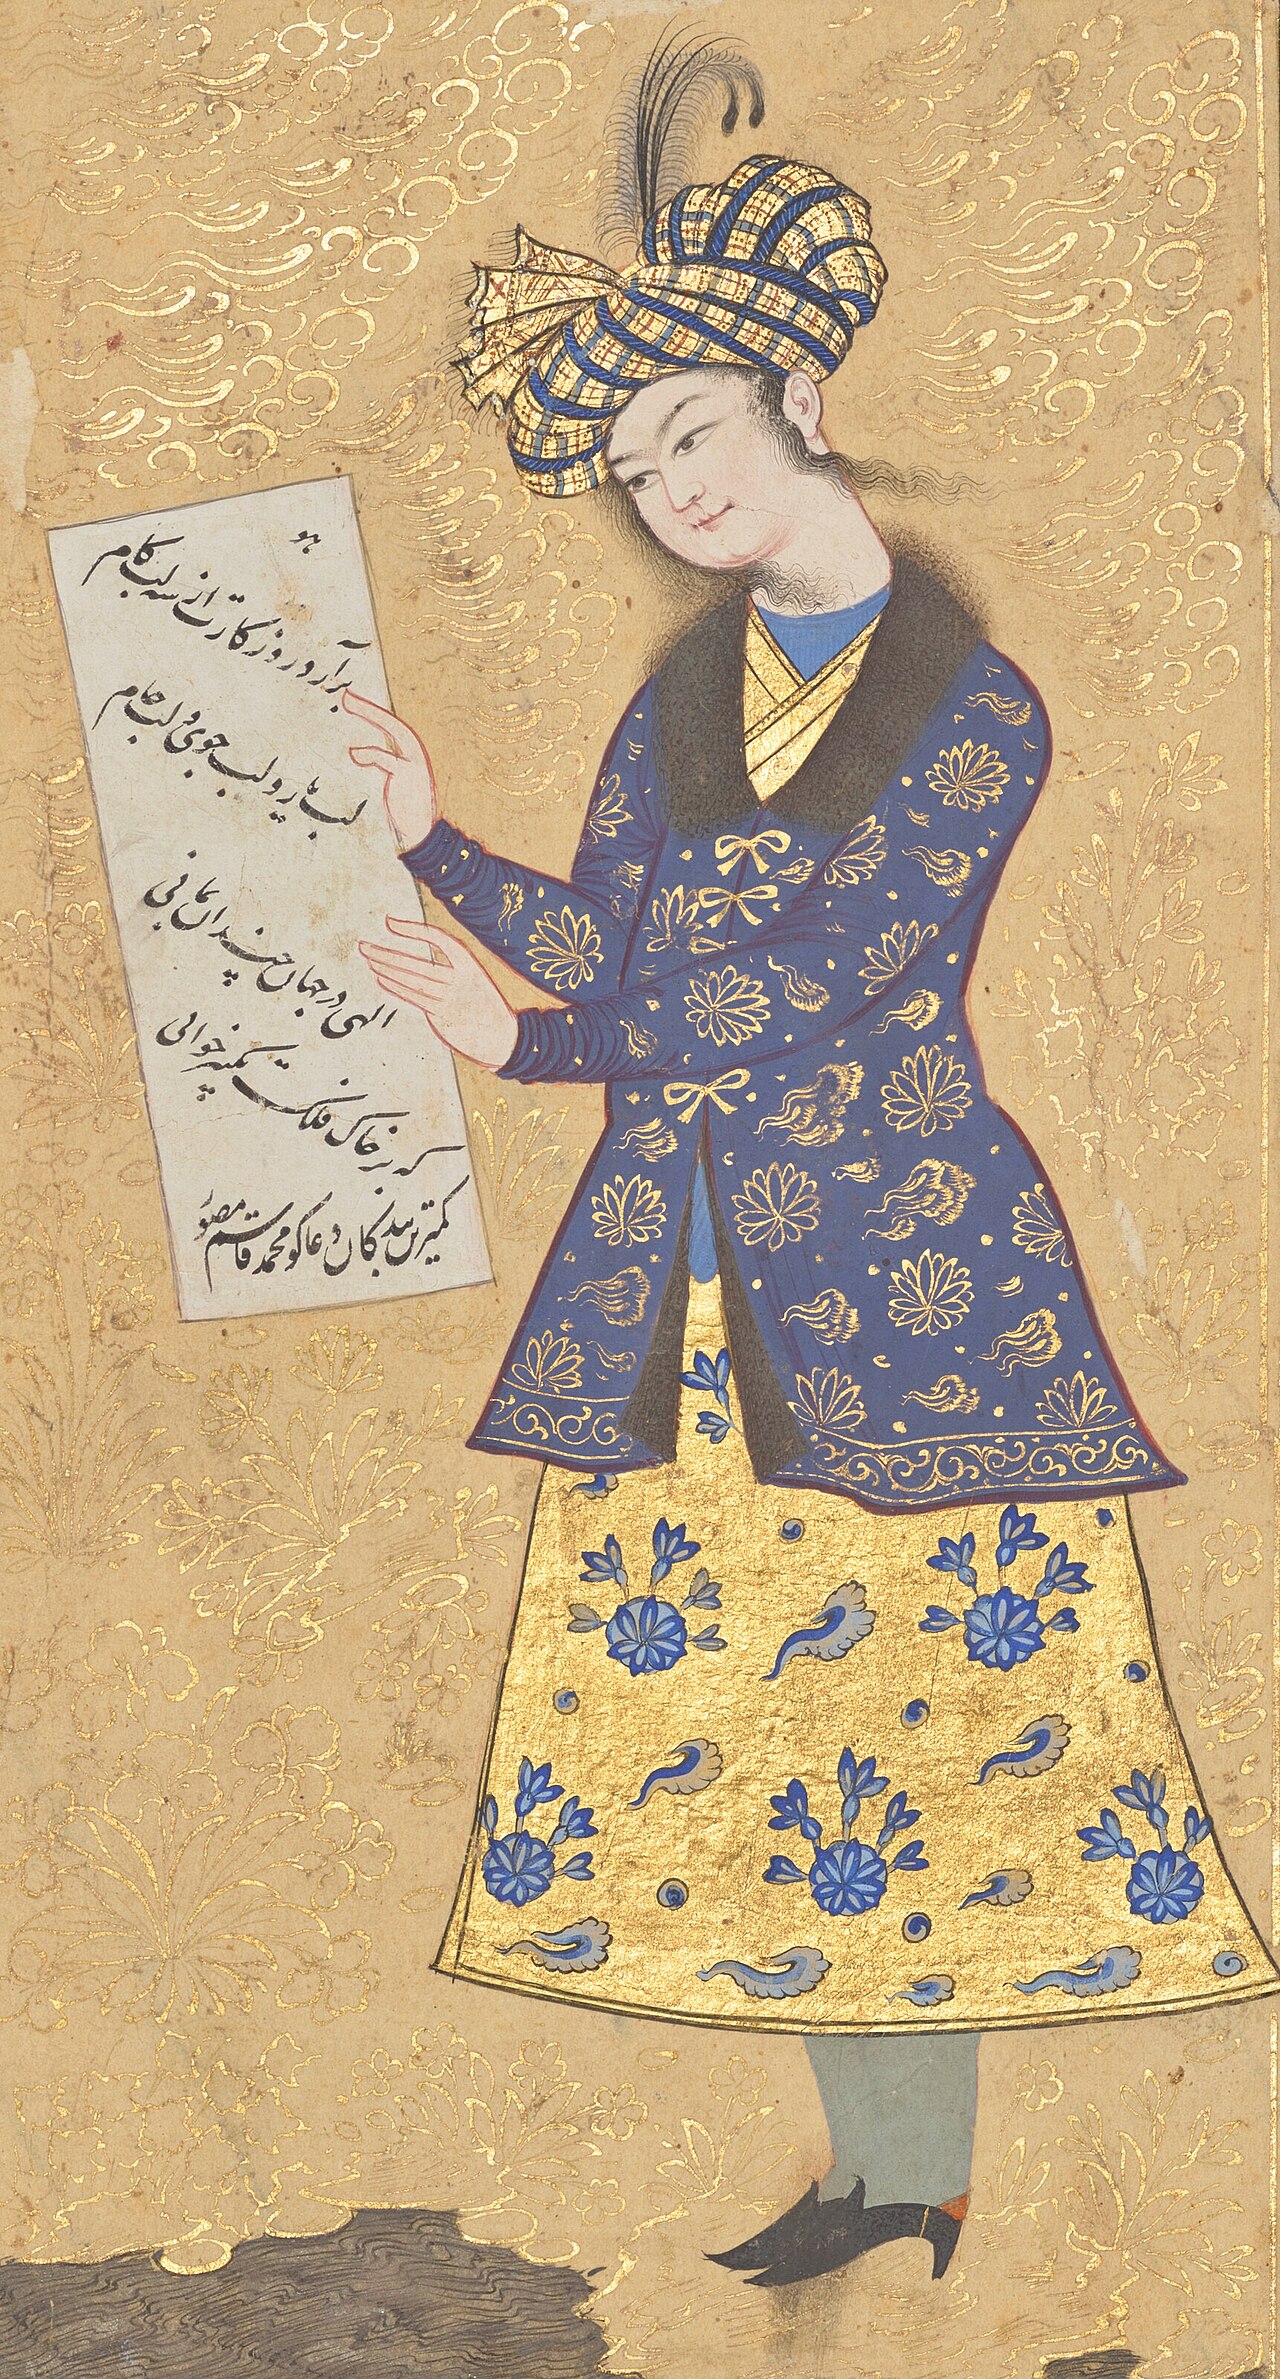 هو
برآرد روزکارت از سه لب کام
لب یار و لب جوی و لب جام
الهی در جهان چندان بمانی
که بر خاک فلک تکبیر خوانی
کمترین بندکان دعاکو محمد قاسم مصور